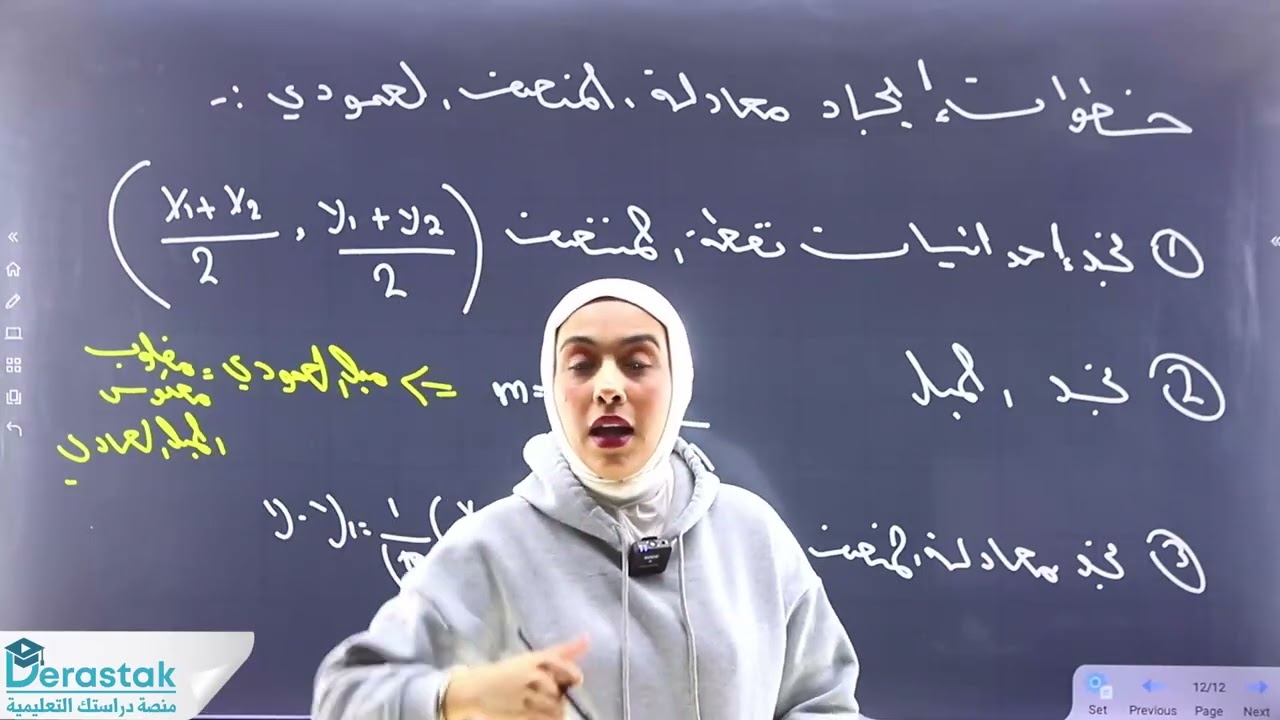 خطوات إيجاد معادلة المنصف العمودي :-
① نجد إحداثيات نقطة المنتصف ( x₁+x₂ / 2 , y₁+y₂ / 2 )
② نجد الميل m= => ميل العمودي = مقلوب
معكوس
الميل العادي
③ نجد معادلة المنصف y-y₁=1/
Derastak
منصة دراستك التعليمية
12/12
Set Previous Page Next